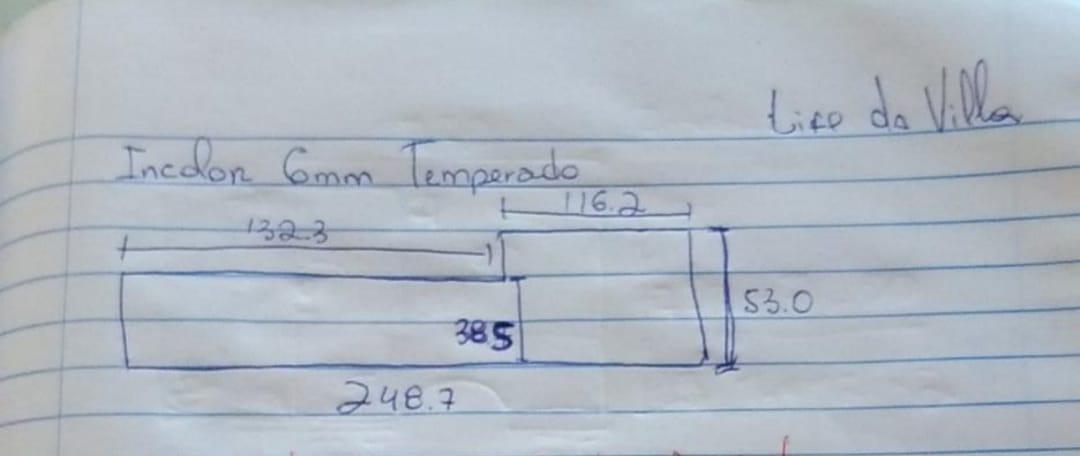 tico da Villa
Incolor 6mm Temperado
116.2
132.3
53.0
385
248.7